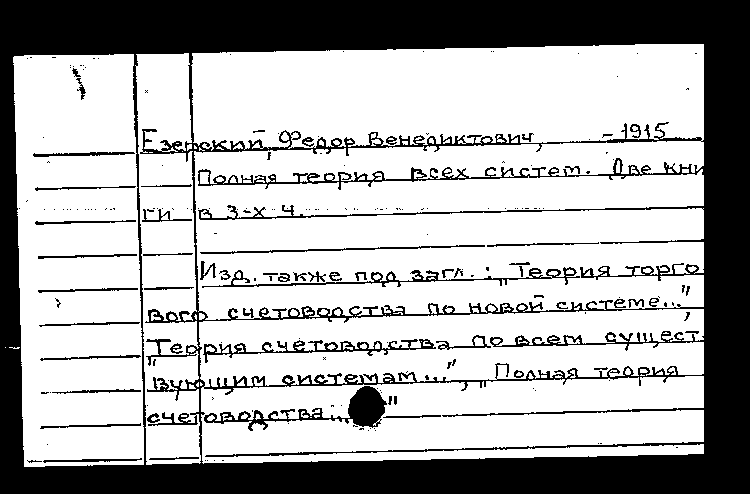 Езерский, Федор Венедиктович, -1915
Полная теория всех систем. Две кни
ги в 3-х ч.
Изд. также под загл.: „Теория торго
вого счетоводства по новой системе...",
„Теория счетоводства по всем сущест
вующим системам...", „Полная теория
счетоводства..."